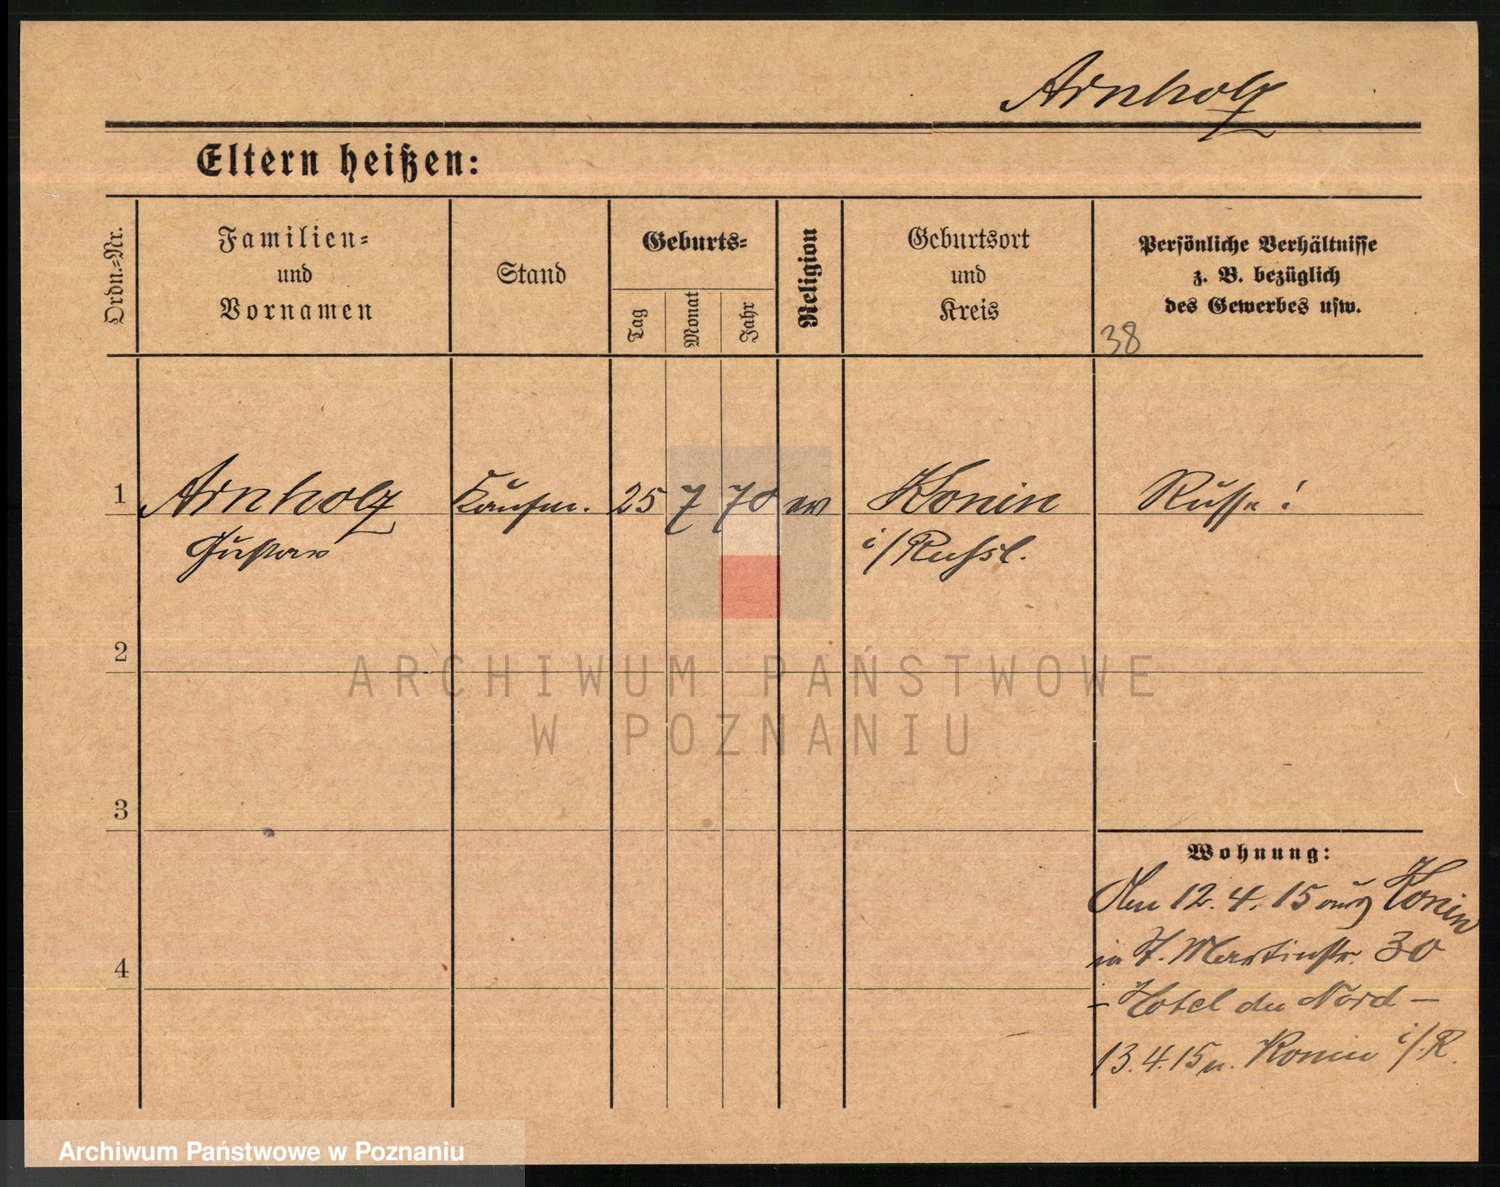 Arnholz
Eltern heißen:
Ordn.-Nr.
Familien-
und
Vornamen
Stand
Geburts-
Tag
Monat
Jahr
Religion
Geburtsort
und
Kreis
Persönliche Verhältnisse
z. B. bezüglich
des Gewerbes usw.
38
1 Arnholz Kaufm. 25 7 70 ev Konin Russe!
Gustav i/Russl.
2
ARCHIWUM PAŃSTWOWE
W POZNANIU
3
Wohnung:
Am 12.4.15 aus Konin
in Martinstr. 30
4
– Hotel du Nord –
13.4.15 n. Konin i/R.
Archiwum Państwowe w Poznaniu